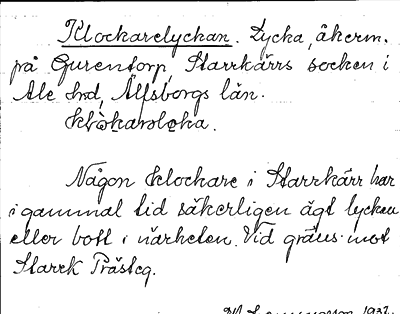 Klockarelyckan. Lycka, åkerm.
på Gurentorp, Starrkärrs socken i
Ale hrd, Älfsborgs län.
Någon klockare i Starrkärr har
i gammal tid säkerligen ägt lyckan
eller bott i närheten. Vid gräns mot
Starrk Prästeg.
1932.